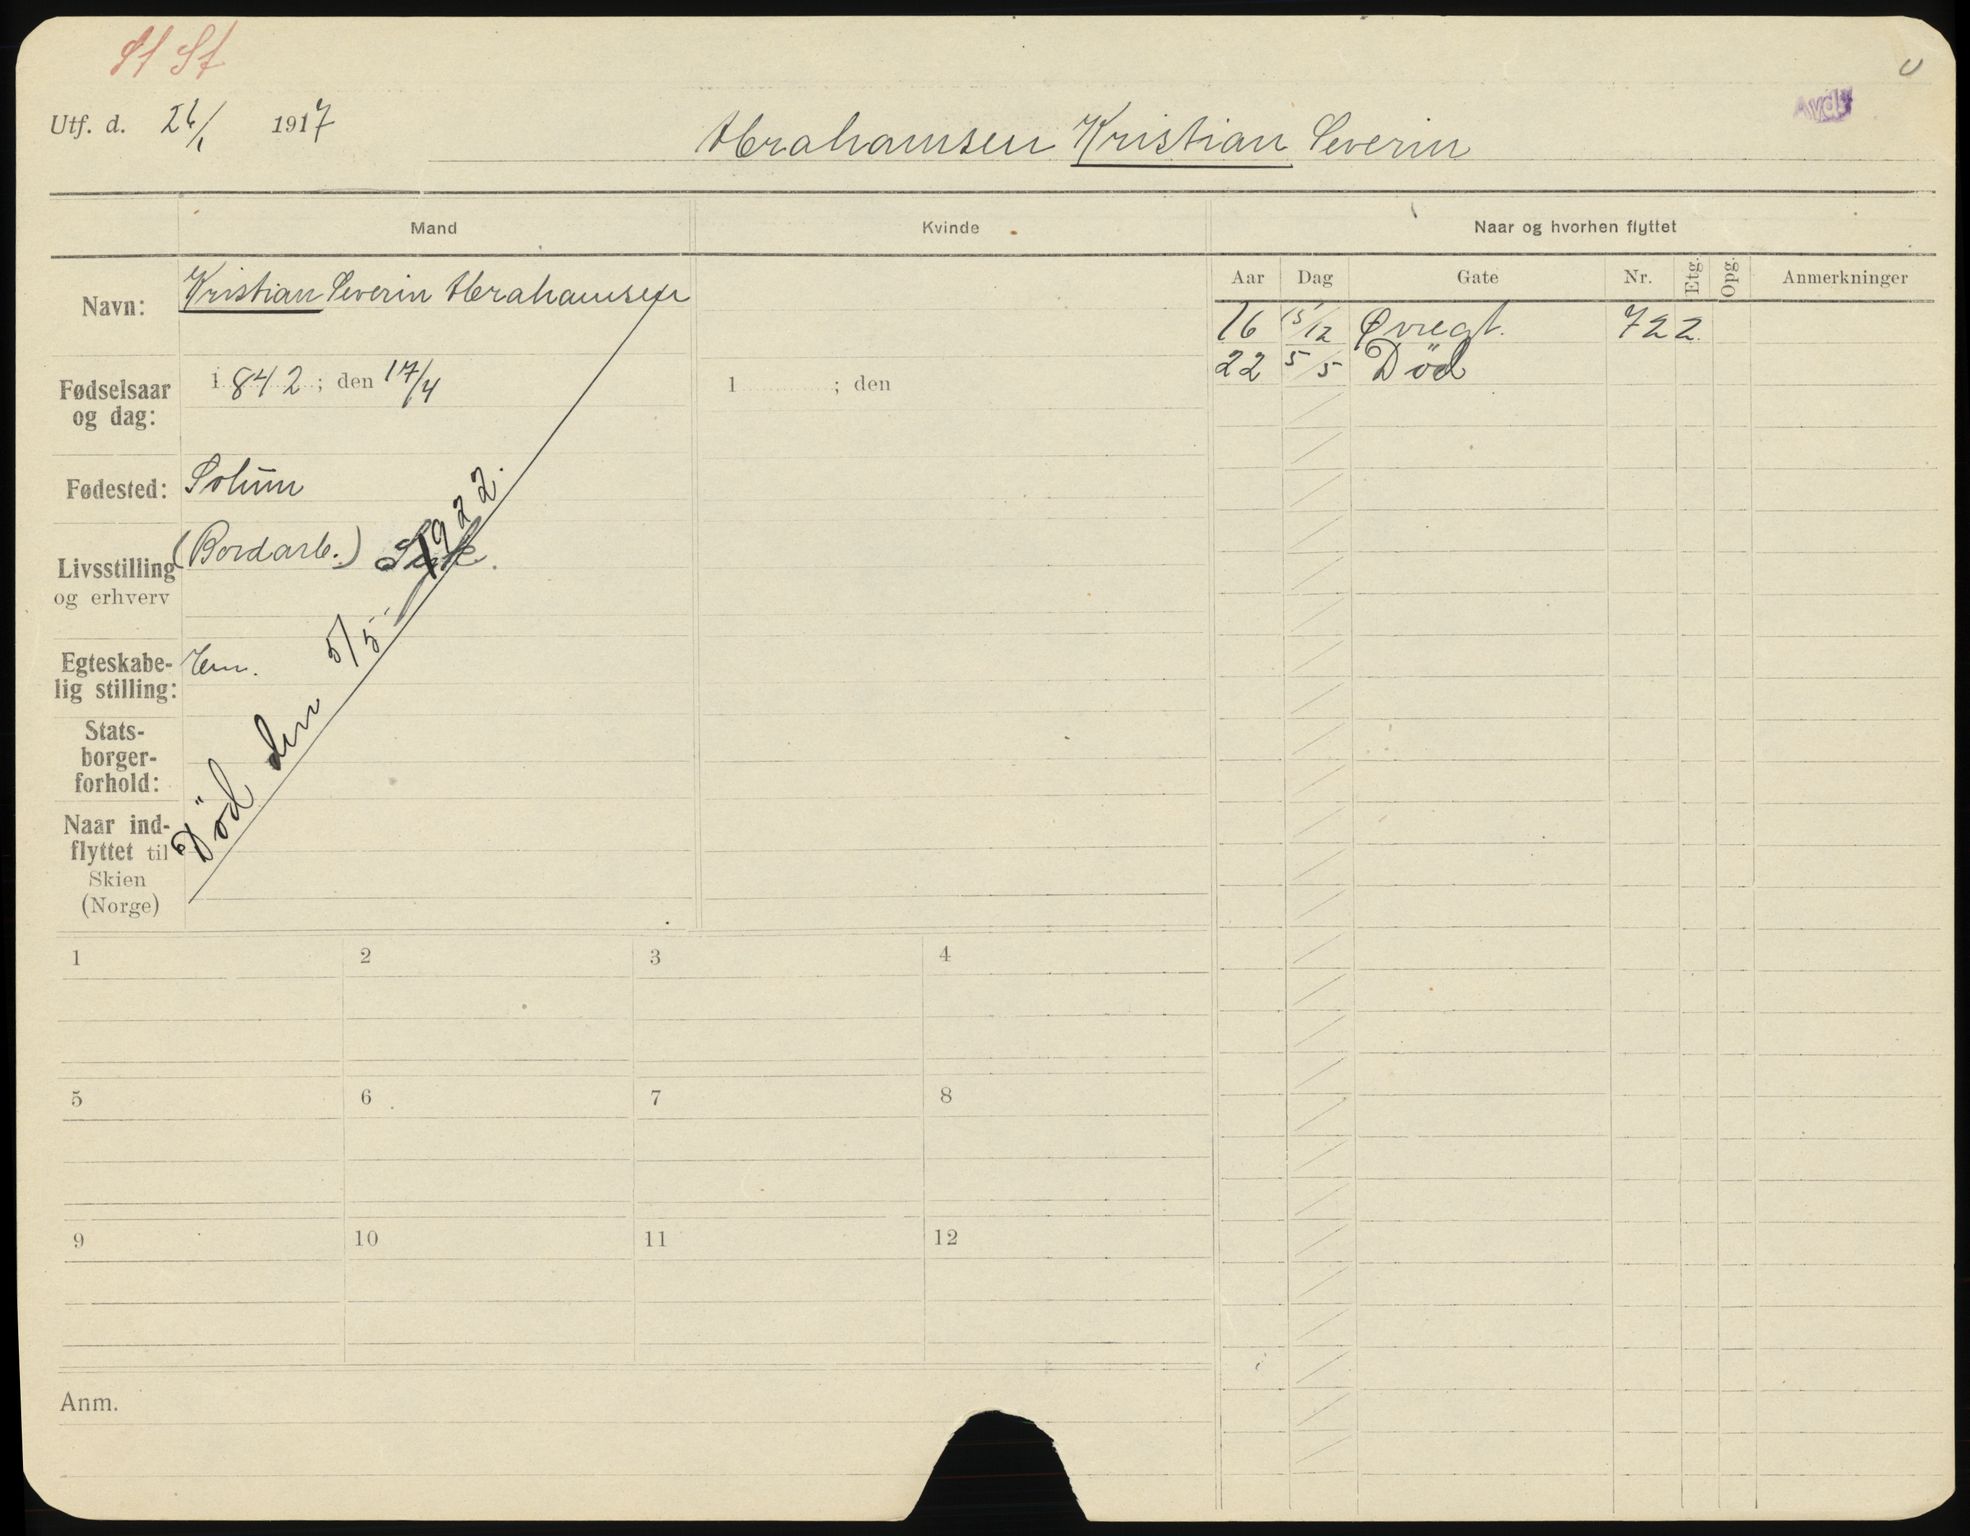 St St
Utf. d. 26/1 1917
Avd
Abrahamsen Kristian Severin
Mand
Kvinde
Naar og hvorhen flyttet
Aar Dag Gate Nr. Etg. Opg. Anmerkninger
16 15/12 Øvregt. 722
22 5/5 Död
Navn: Kristian Severin Abrahamsen
Fødselsaar og dag: 1842; den 17/4
1 ; den
Fødested: Solum
Livsstilling (Bordarb.)
og erhverv
Egteskabe-
lig stilling: Em.
Stats-
borger-
forhold:
Naar ind-
flyttet til
Skien
(Norge)
Död den 5/5 1922.
1 2 3 4
5 6 7 8
9 10 11 12
Anm.